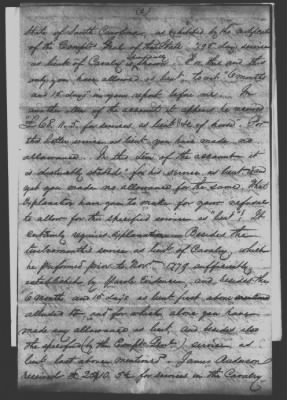 (2)
State of South Carolina, as exhibited by the certificate
of the Compt. Genl of that State "295 days services
as lieut of Cavalry
only you have allowed as lieut. to wit "6 months
and 15 days" in your report before me. In
another item of the account it appears he received
£68.11.5. for services as lieut &c of horse. For
this latter service as lieut. you have made no
allowance. In this item of the account it
is distinctly stated "for his services as lieut" and
yet you made no allowance for the same. What
explanation have you to make for your refusal
to allow for this specified service as "lieut"? It
certainly requires explanation. Besides the
two months service as lieut of Cavalry which
he performed prior to Novr 1779 sufficiently
established by and besides the
6 months and 15 days as lieut first above
alluded to, and for which alone you have
made any allowance as lieut. and besides also
the specified by the Compt. Genl) services as
lieut last above mentioned. James Anderson
received £ for services in the Cavalry